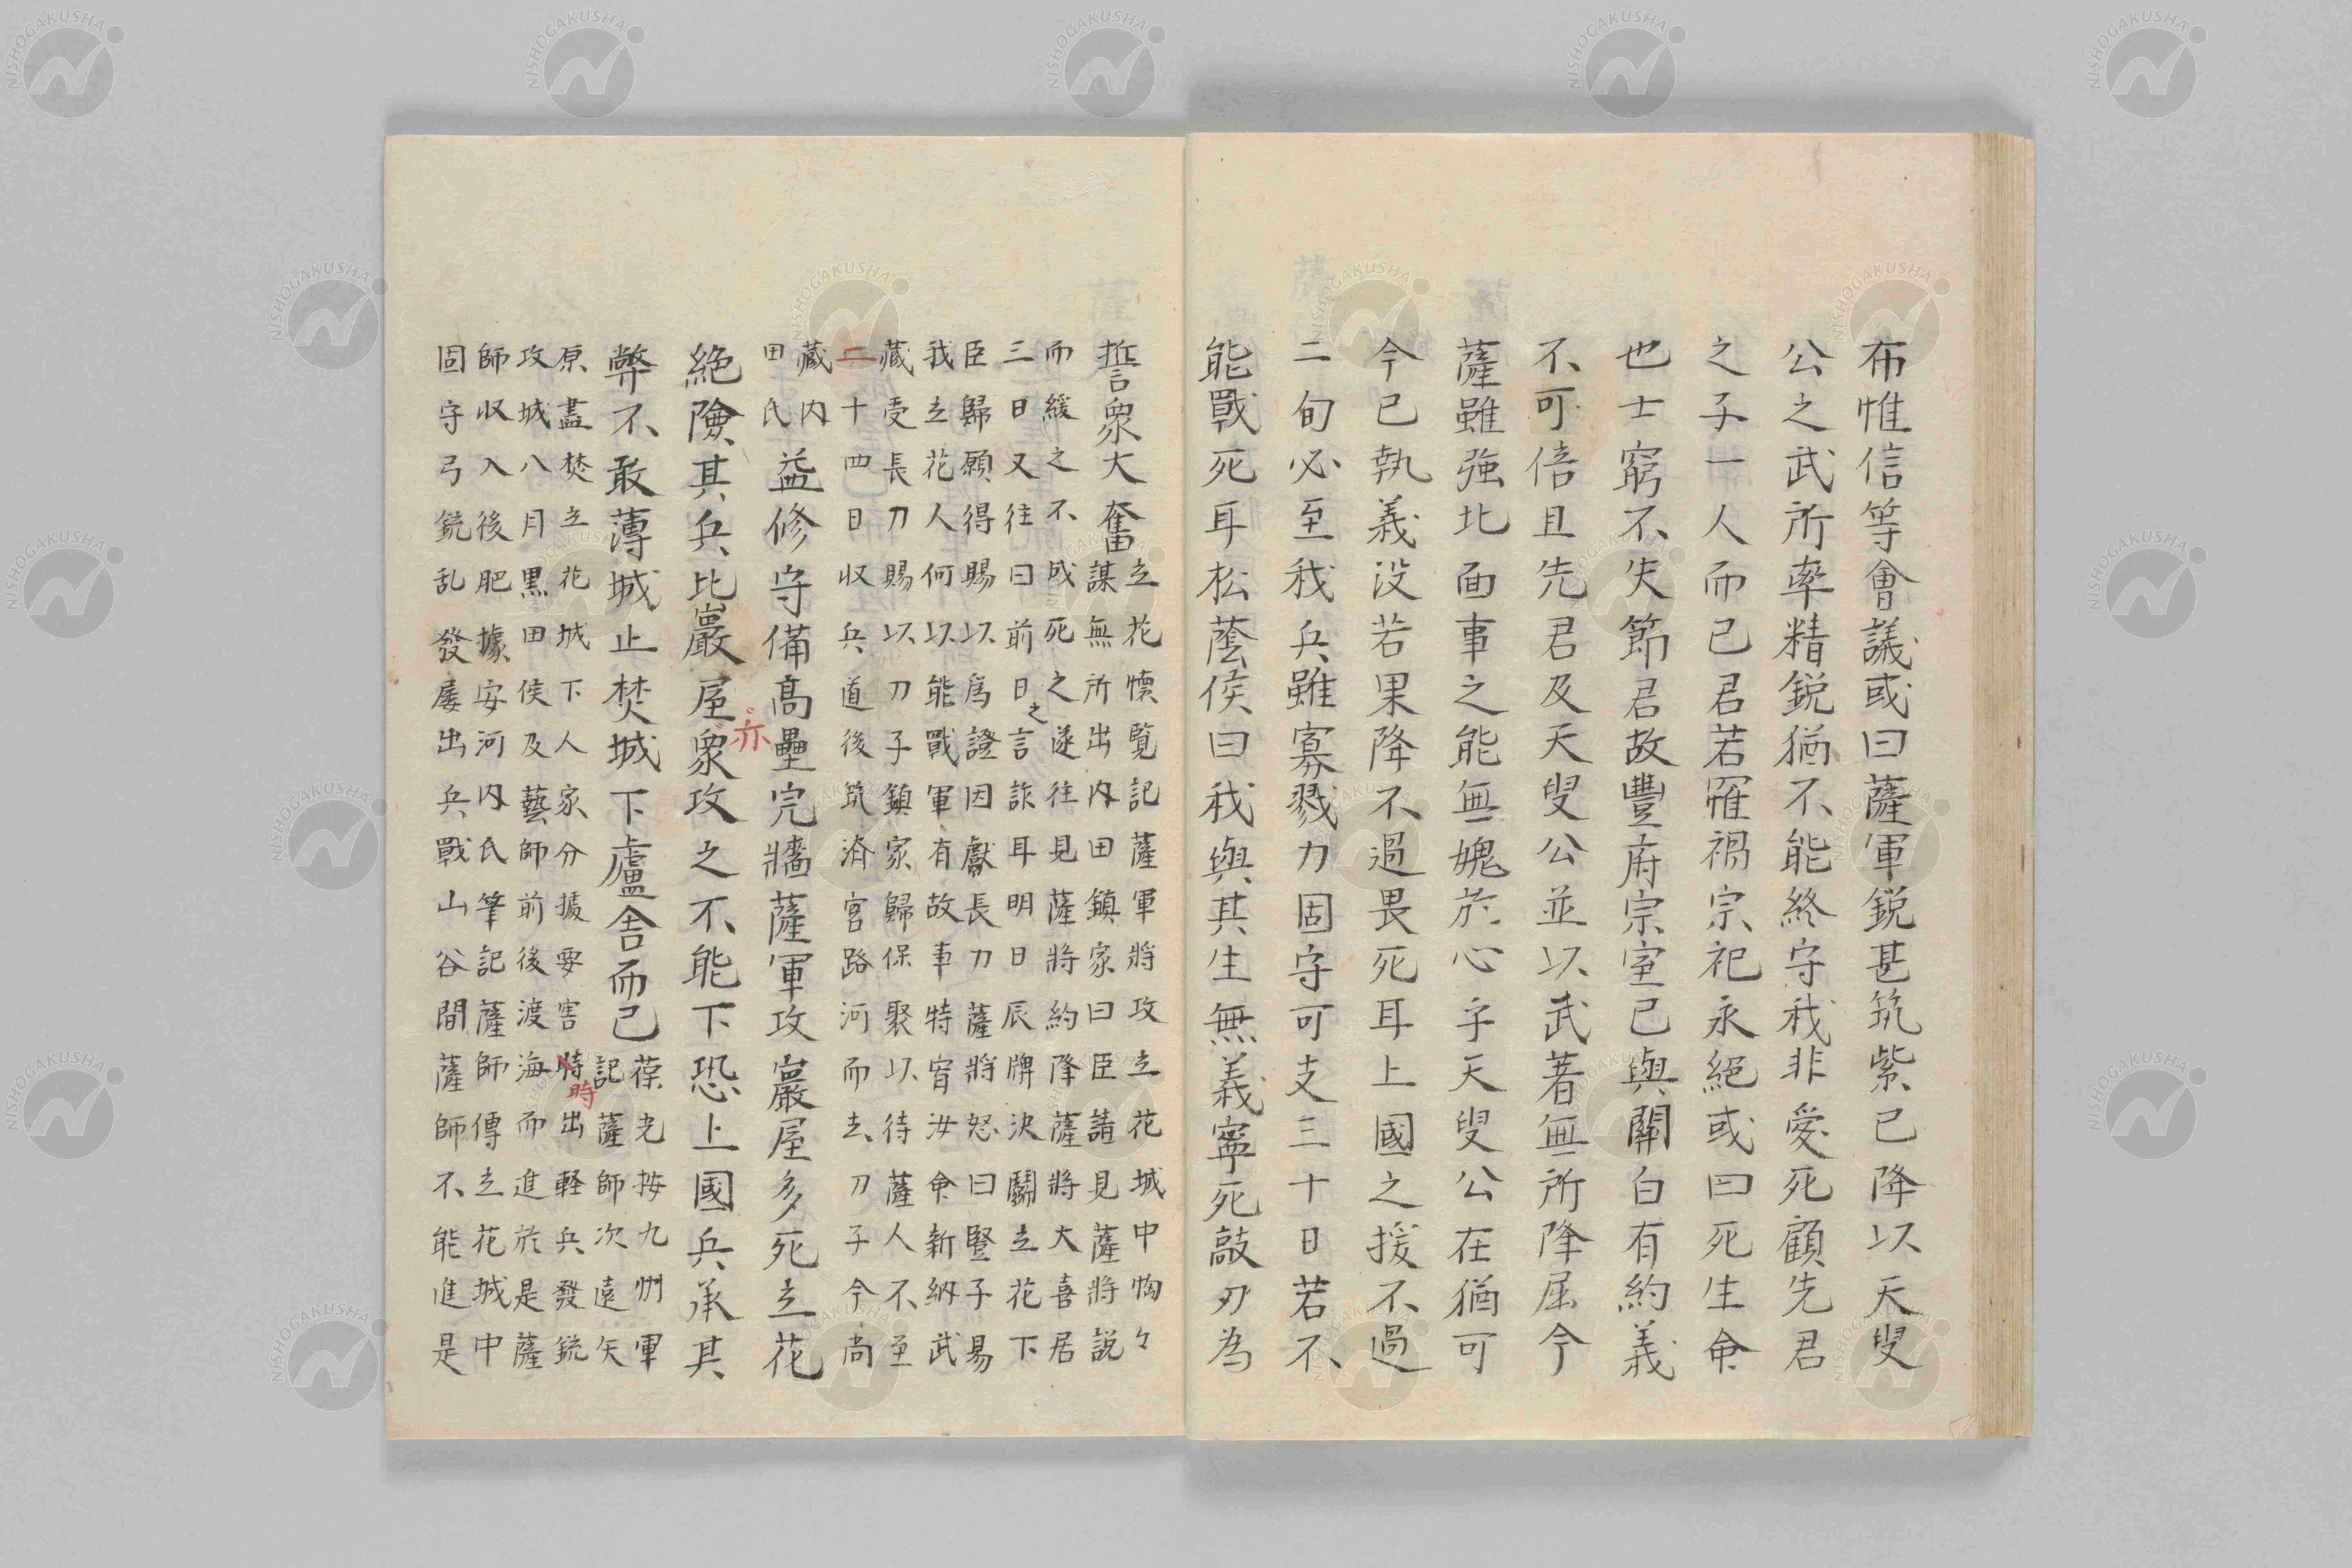 布惟信等會議或曰薩軍鋭甚筑紫已降以天叟
公之武所率精鋭猶不能終守我非愛死顧先君
之子一人而已君若罹禍宗祀永絕或曰死生命
也士窮不失節君故豊府宗室已與關白有約義
不可倍且先君及天叟公並以武著無所降屈今
薩雖強北面事之能無媿於心乎天叟公在猶可
今已執義没若果降不過畏死耳上國之援不過
二旬必至我兵雖寡戮力固守可支三十日若不
能戰死耳松蔭侯曰我與其生無義寧死敵刃為
誓衆大奮
立花懐覧記薩軍將攻立花城中恟々
謀無所出内田鎮家曰臣請見薩將説
而緩之不成死之遂往見薩將約降薩將大喜居
三日又往曰前日之言詐耳明日辰牌決鬬立花下
臣歸願得賜以為證因獻長刀薩將怒曰豎子易
我立花人何以能戰軍有故事特宥汝命新納武
藏受長刀賜以刀子鎮家歸保聚以待薩人不至
二十四日收兵道後筑濟宮路河而去刀子今尚
藏内
田氏
益修守備高壘完牆薩軍攻巖屋多死立花
絕險其兵比巖屋衆亦攻之不能下恐上國兵承其
弊不敢薄城止焚城下廬舍而已
葆光按九州軍
記薩師次遠矢
原盡焚立花城下人家分據要害時時出軽兵發銃
攻城八月黒田侯及藝師前後渡海而進於是薩
師収入後肥據安河内氏筆記薩師傳立花城中
固守弓銃乱發屡出兵戰山谷間薩師不能進是
NISHOGAKUSHA